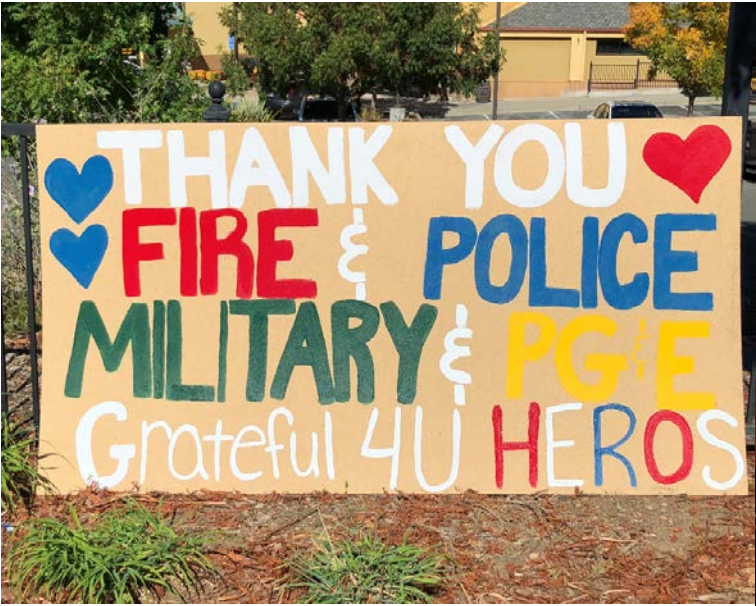 THANK YOU
FIRE & POLICE
MILITARY & PG&E
Grateful 4U HEROS